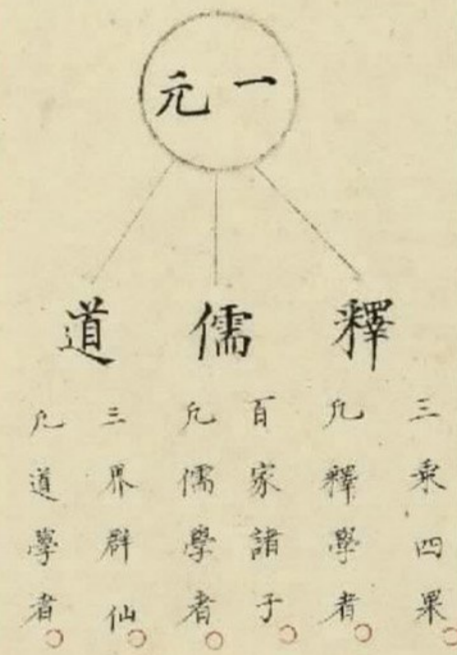 一元
釋
儒
道
三乘四果
凡釋學者
百家諸子
凡儒學者
三界群仙
凡道學者